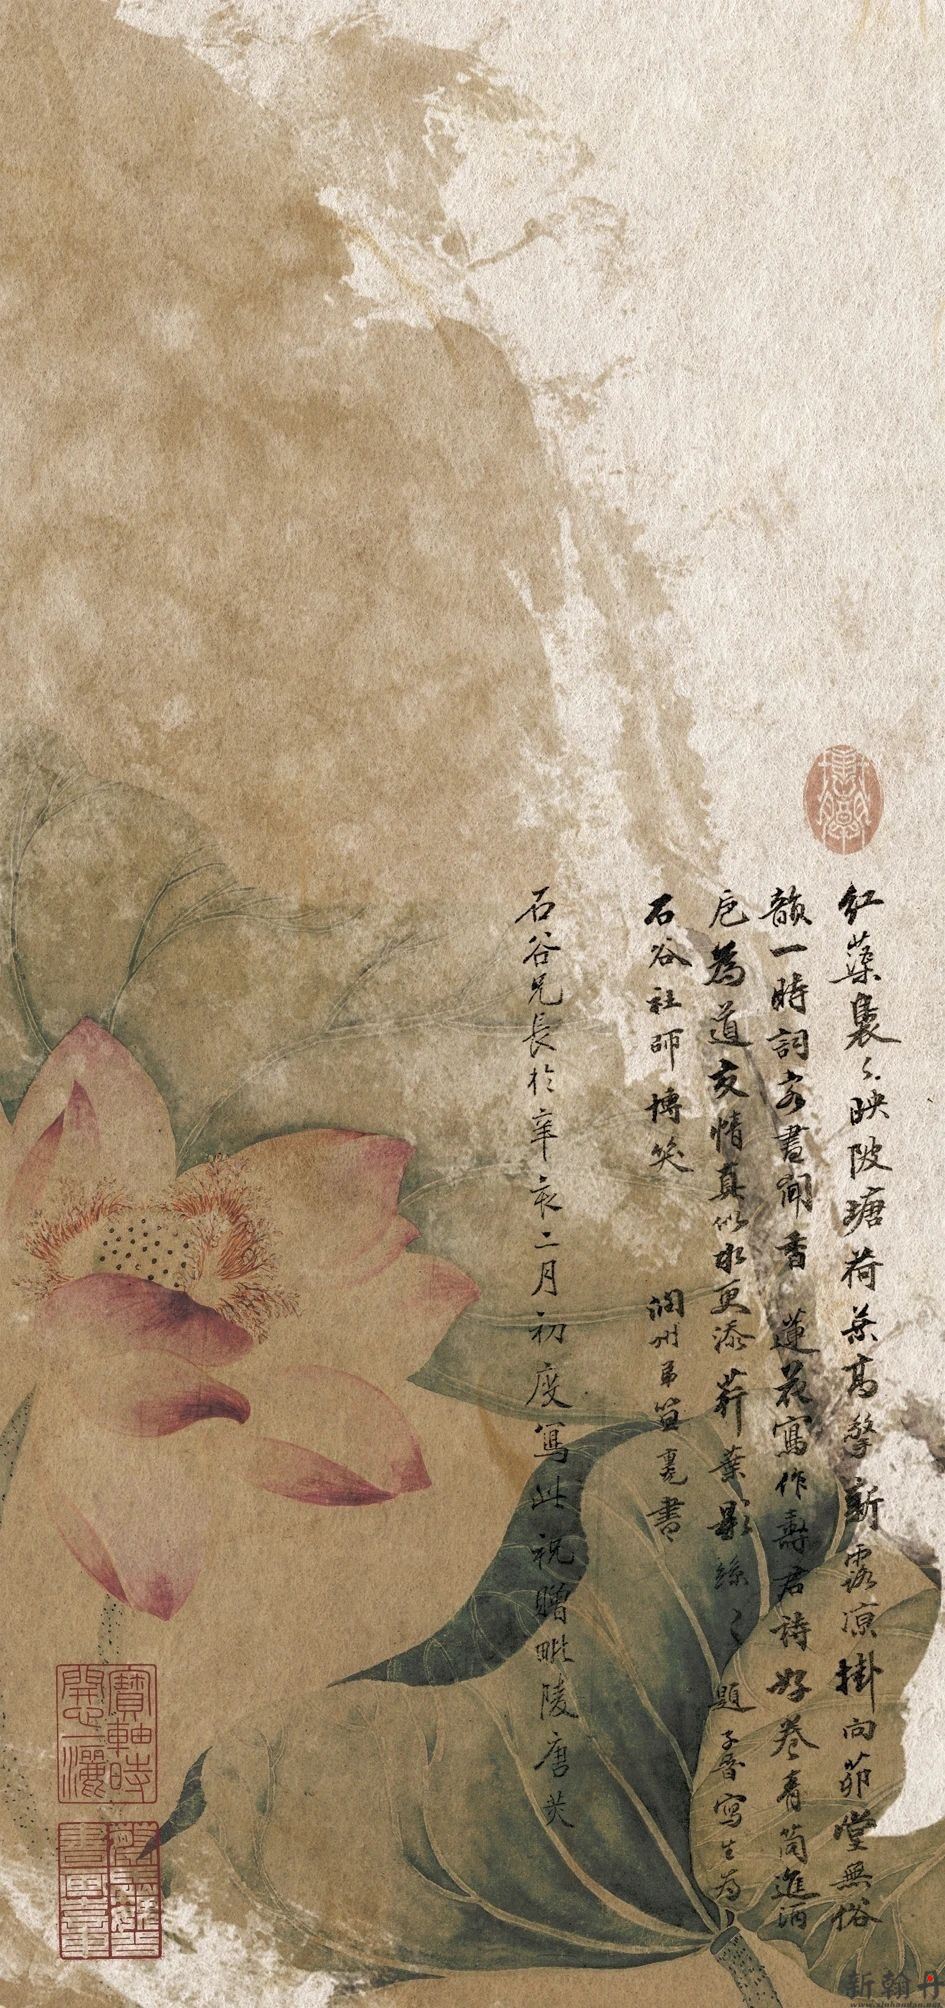 紅蕖裊〻映陂塘荷葉高擎新露涼掛向茆堂無俗
韻一時詞客盡聞香 蓮花寫作壽君詩好卷青筒進酒
巵為道交情真似水更添荇葉影絲〻 題子晉寫生為
石谷社師博笑 潤州弟笪重光書
石谷兄長於辛亥二月初度寫此祝贈毗陵唐炗
寶軸時
開心一灑
新翰丹